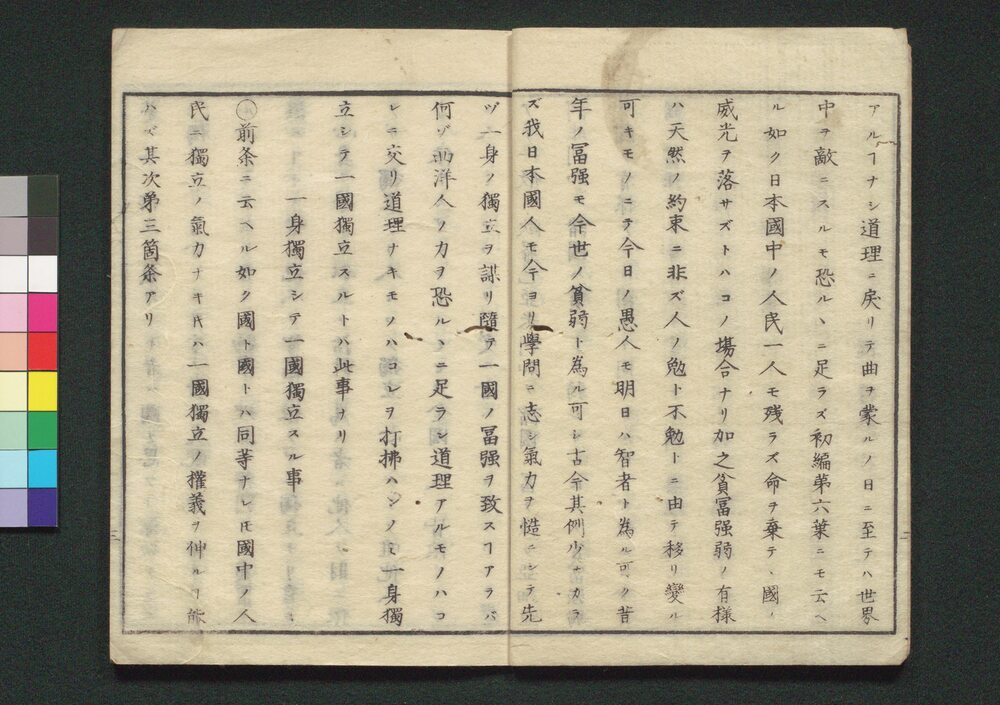 アルヿナシ道理ニ戻リテ曲ヲ蒙ルノ日ニ至テハ世界
中ヲ敵ニスルモ恐ルヽニ足ラズ初編第六葉ニモ云ヘ
ル如ク日本國中ノ人民一人モ残ラズ命ヲ棄テヽ國ノ
威光ヲ落サズトハコノ塲合ナリ加之貧冨强弱ノ有様
ハ天然ノ約束ニ非ズ人ノ勉ト不勉トニ由テ移リ變ル
可キモノニテ今日ノ愚人モ明日ハ智者ト為ル可ク昔
年ノ冨强モ今世ノ貧弱ト為ル可シ古今其例少ナカラ
ズ我日本國人モ今ヨリ學問ニ志シ氣力ヲ慥ニシテ先
ヅ一身ノ獨立ヲ謀リ隨テ一國ノ冨强ヲ致スヿアラバ
何ゾ西洋人ノ力ヲ恐ルヽニ足ラン道理アルモノハコ
レニ交リ道理ナキモノハコレヲ打拂ハンノミ一身獨
立シテ一國獨立スルトハ此事ナリ
一身獨立シテ一國獨立スル事
〇前条ニ云ヘル如ク國ト國トハ同等ナレ𪜈國中ノ人
民ニ獨立ノ氣力ナキ𪜈ハ一國獨立ノ權義ヲ伸ルヿ能
ハズ其次第三箇条アリ